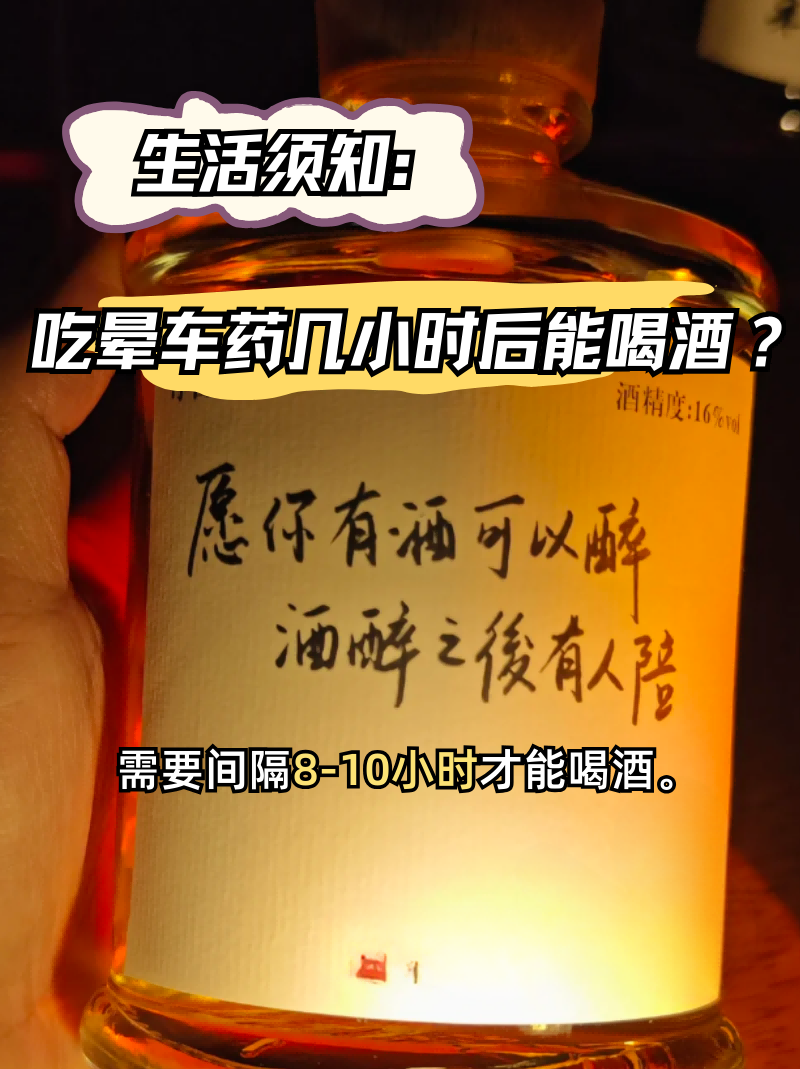 生活须知:
吃晕车药几小时后能喝酒？
酒精度:16%vol
愿你有酒可以醉
酒醉之後有人陪
需要间隔8-10小时才能喝酒。